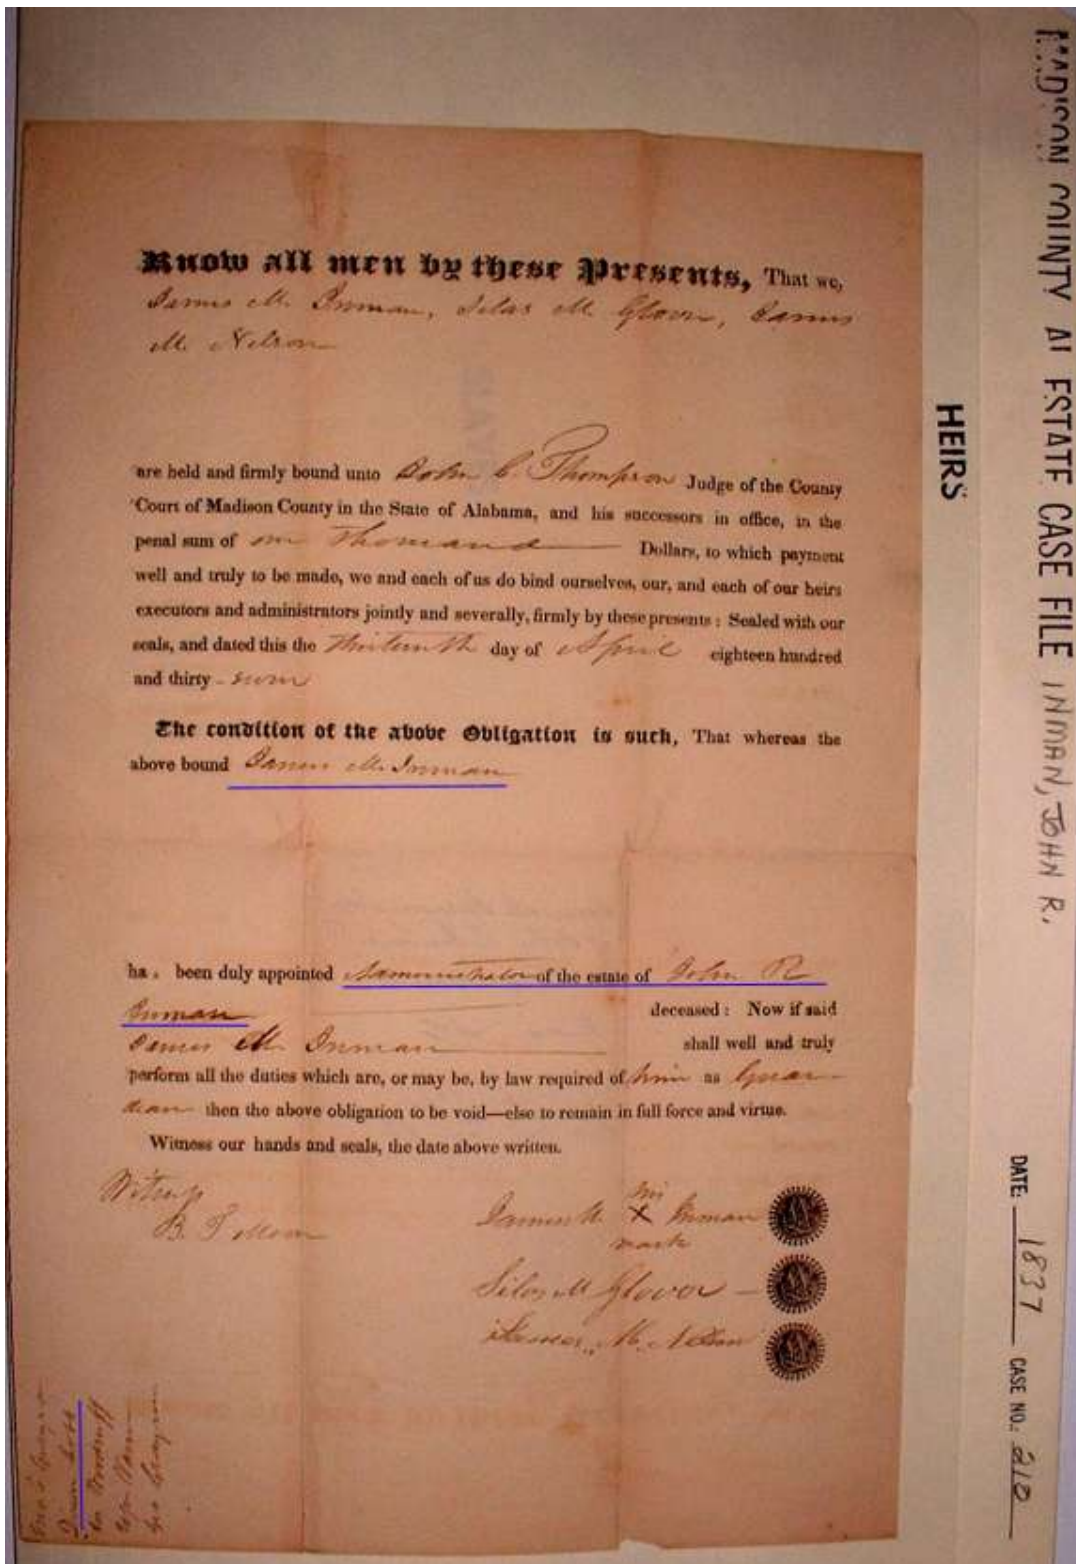 Know all men by these Presents, That we,
James M. Inman, Silas M. Glover, James
M. Nelson
are held and firmly bound unto John C. Thompson Judge of the County
Court of Madison County in the State of Alabama, and his successors in office, in the
penal sum of one Thousand Dollars, to which payment
well and truly to be made, we and each of us do bind ourselves, our, and each of our heirs
executors and administrators jointly and severally, firmly by these presents: Sealed with our
seals, and dated this the thirteenth day of April eighteen hundred
and thirty-seven
The condition of the above Obligation is such, That whereas the
above bound James M. Inman
ha. been duly appointed Administrator of the estate of John R
Inman deceased: Now if said
James M. Inman shall well and truly
perform all the duties which are, or may be, by law required of him as Guar-
dian then the above obligation to be void—else to remain in full force and virtue.
Witness our hands and seals, the date above written.
Witness
B. T. Moore
James M. his X mark Inman
Silas M Glover
James M. Nelson
HEIRS
MADISON COUNTY Al ESTATE CASE FILE INMAN, JOHN R.
DATE: 1837 CASE NO.: 210